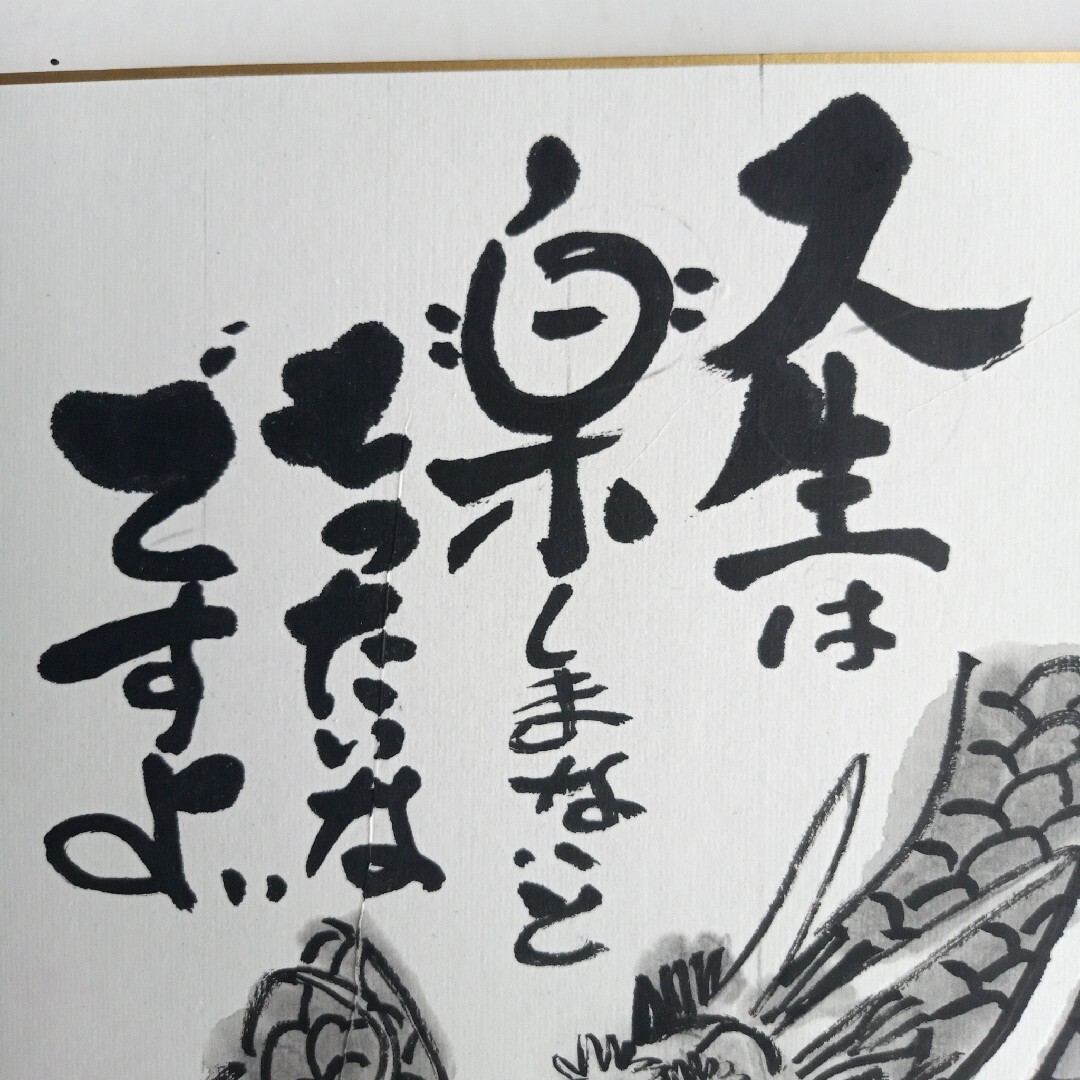 人生は
楽しまないと
もったいな
ですよ